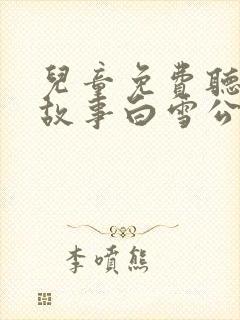 兒童免費聽
故事白雪公
李噴熊